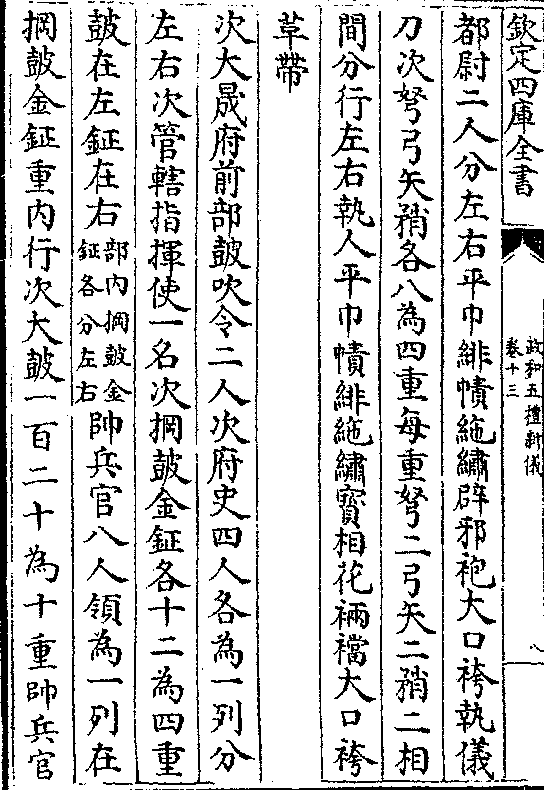 欽定四庫全書
政和五禮新儀
卷十三
八
都尉二人分左右平巾緋幘絁繡辟邪袍大口袴執儀
刀次弩弓矢矟各八為四重每重弩二弓矢二矟二相
間分行左右執人平巾幘緋絁繡寳相花裲襠大口袴
革帶
次大晟府前部鼓吹令二人次府史四人各為一列分
左右次管轄指揮使一名次掆鼓金鉦各十二為四重
鼓在左鉦在右部内掆鼓金鉦各分左右帥兵官八人領為一列在
掆鼓金鉦重内行次大鼓一百二十為十重帥兵官